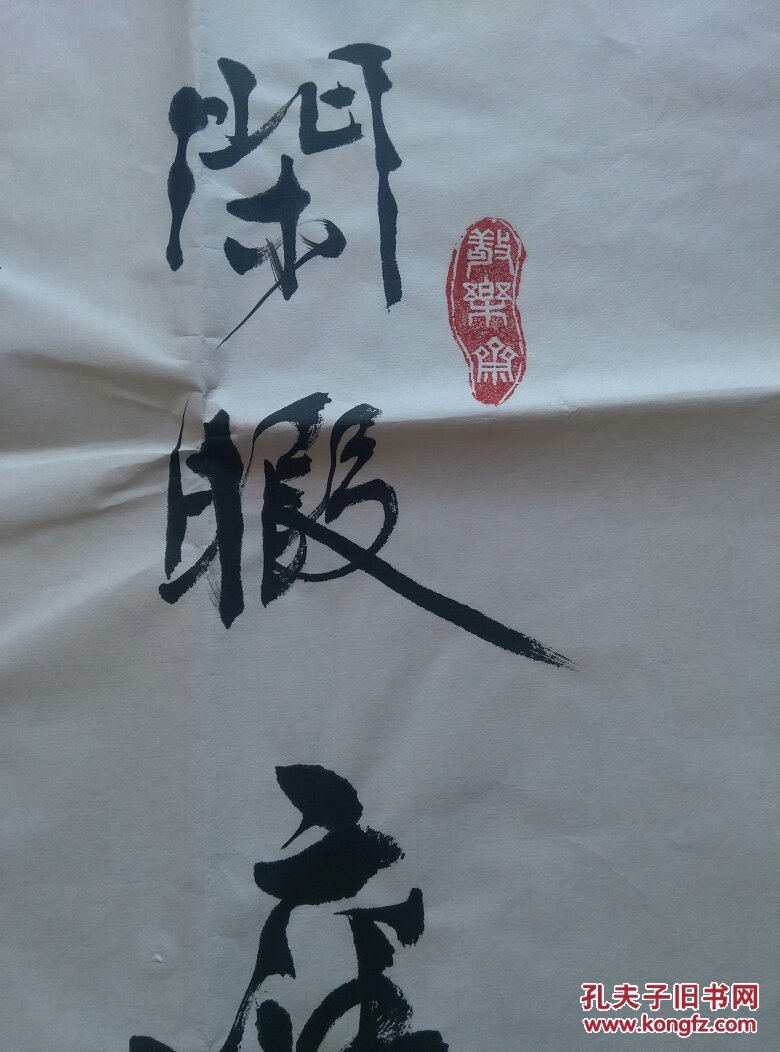 閑暇
樂齋
孔夫子旧书网
www.kongfz.com